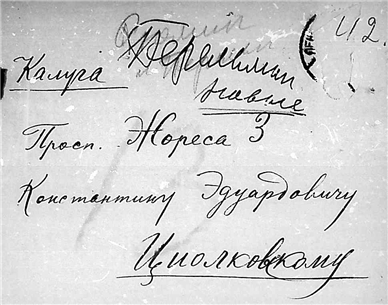 Перельман
42.
Калуга
Просп. Жореса 3
Константину Эдуардовичу
Циолковскому